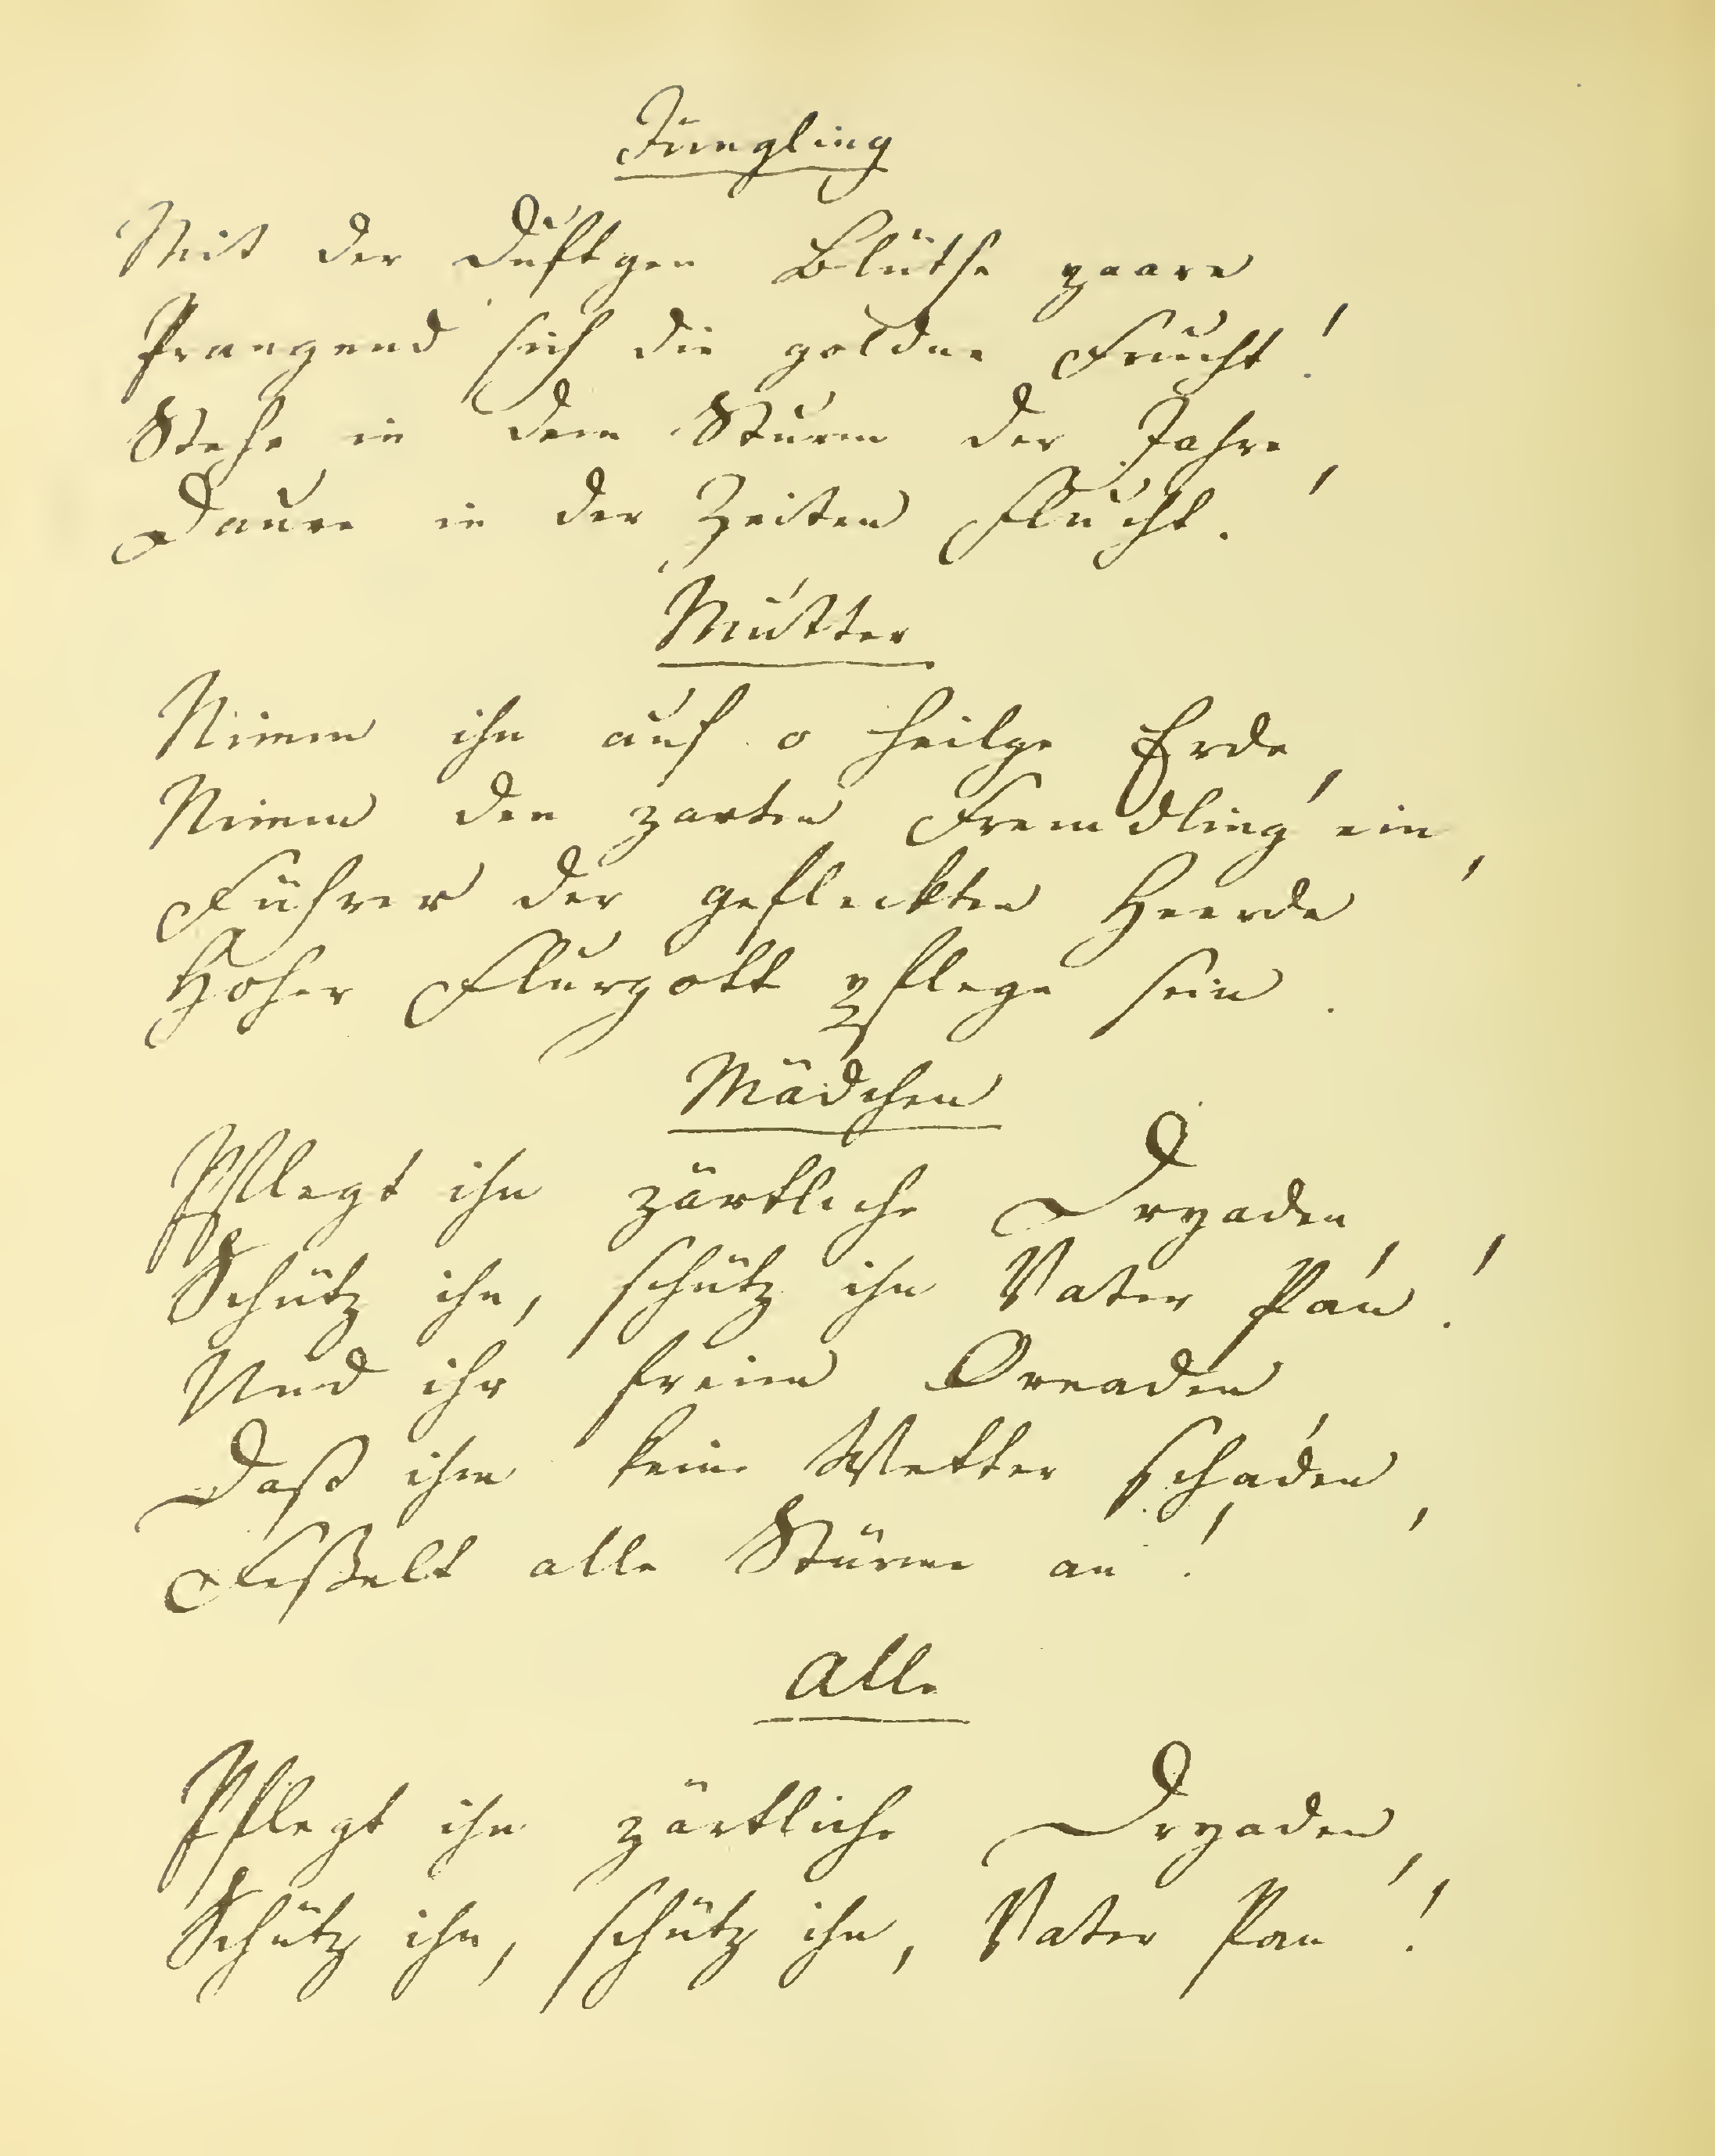 Jüngling
Mit der düftgen Blüthe paare
Prangend sich die goldne Frucht!
Stehe in dem Sturm der Jahre,
Daure in der Zeiten Flucht.
Mütter
Nimm ihn auf o heilge Erde,
Nimm den zarten Fremdling ein,
Führer der gefleckten Heerde
Hoher Flurgott pflege sein.
Mädchen
Pflegt ihn zärtliche Dryaden,
Schütz ihn, schütz ihn Vater Pan!
Und ihr freien Oreaden,
Daß ihm keine Wetter schaden,
Feßelt alle Stürme an!
Alle
Pflegt ihn zärtliche Dryaden,
Schütz ihn, schütz ihn, Vater Pan!